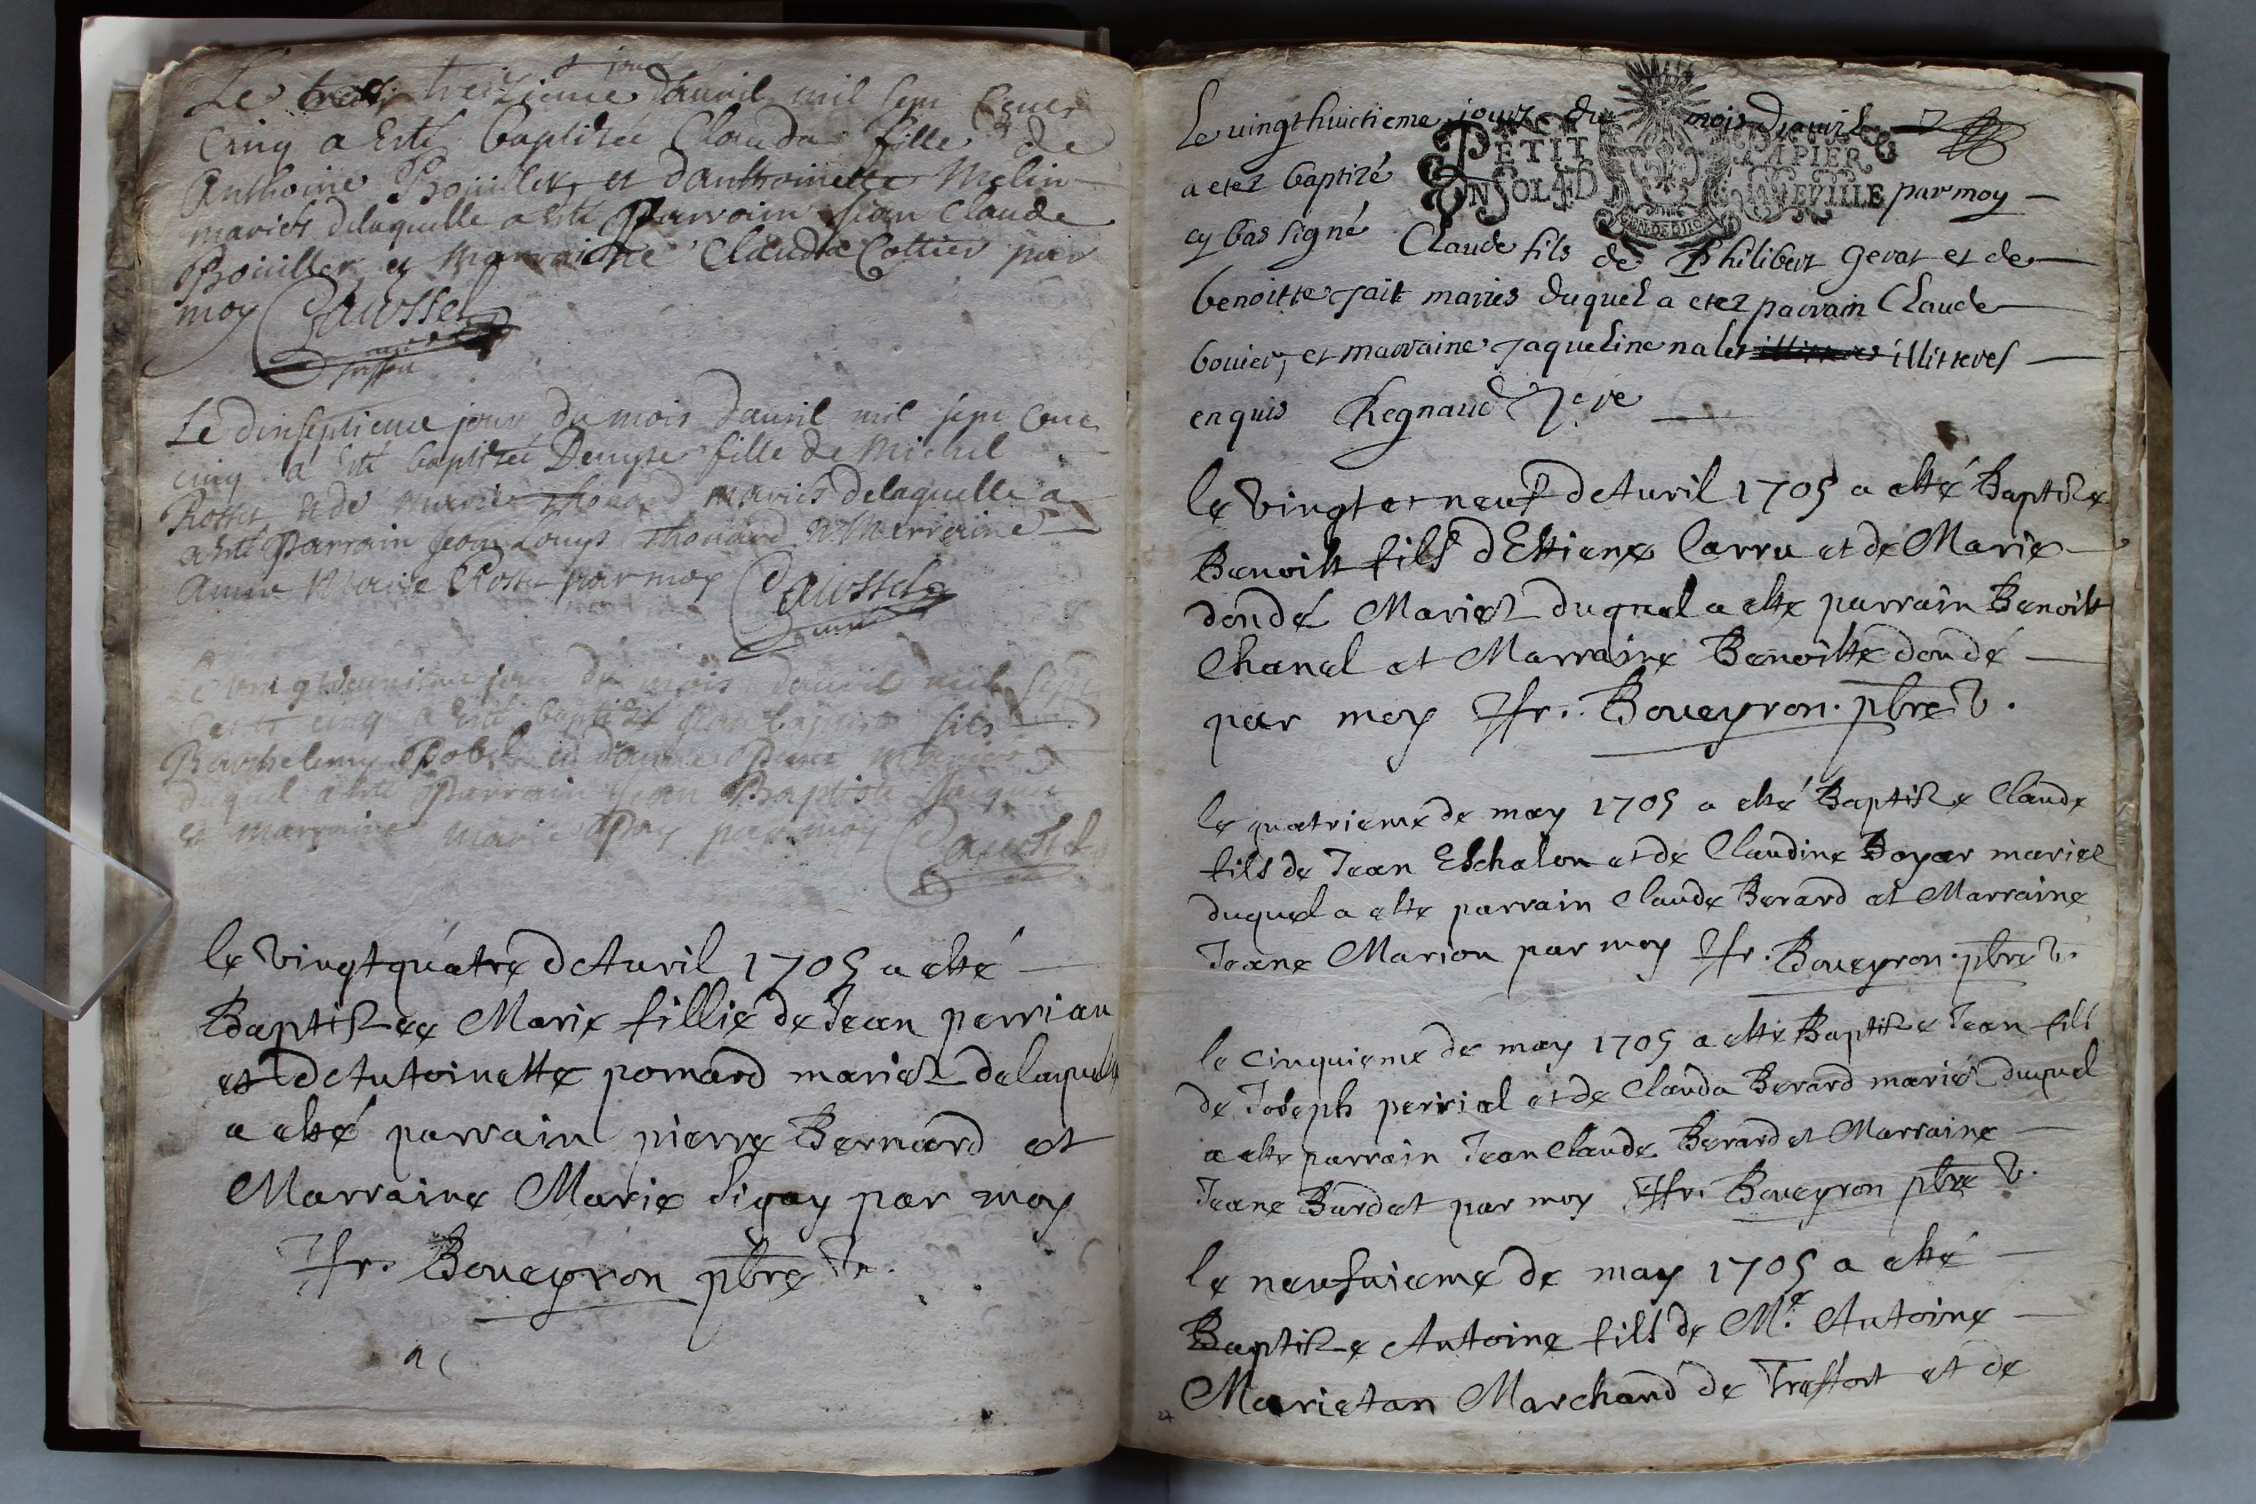 Le treizieme jour d'auril mil sept cents
cinq a esté baptisée Clauda fille de
Anthoine Bouiller et d'anthoinette Melin
mariés delaquelle a esté Parrain jean Claude
Bouiller et Marraine Claudra Cottier par
moy Gaussel
Le dixseptieme jour du mois dauril mil sept cent
cinq a esté baptizée Denyse fille de Michel
Rosset et de marie Thouard mariés delaquelle a
esté Parrain jean Louys Thouard et Merraine
Anne Marie Rosset par moy Gaussel
Le jour du mois dauril mil sept
cents cinq a esté baptizé fils
Barthelemy et d'anne mariés
duquel a esté Parrain jean Baptiste
et marraine marie par moy Gaussel
le vingtquatre dAuril 1705 a esté
Baptizée Marie fillie de Jean perrian
et dAntoinette pomard mariez delaquelle
a esté parrain pierre Bernard et
Marraine Marie Sigay par moy
Fr. Boueyron pbre V.
Le vingthuictieme jour du mois d'auril
PETIT PAPIER
UN SOL 4 D LA FEVILLE
a etez baptizé par moy
cy bas signé Claude fils de Philibert gerat et de
benoitte jait mariés duquel a etez pairain Claude
bouier, et mairaine jaqueline nalet illitteres
enquis Regnaud
le vingt et neuf dAuril 1705 a esté Baptize
Benoist fils dEstiene Carru et de Marie
dondé Mariez duquel a esté parrain Benoist
Chanel et Marraine Benoiste dondé
par moy Fr. Boueyron pbre V.
le quatrieme de may 1705 a esté Baptize Claude
fils de Jean Eschalon et de Claudine Boyer mariez
duquel a esté parrain Claude Berard et Marraine
Jeane Marion par moy Fr. Boueyron pbre V.
le cinquieme de may 1705 a esté Baptize Jean fils
de Joseph perrial et de Clauda Berard mariez duquel
a esté parrain Jean Claude Berard et Marraine
Jeane Burdet par moy Fr. Boueyron pbre V.
le neufuieme de may 1705 a esté
Baptize Antoine fils de Me. Antoine
Marietan Marchand de Treffort et de